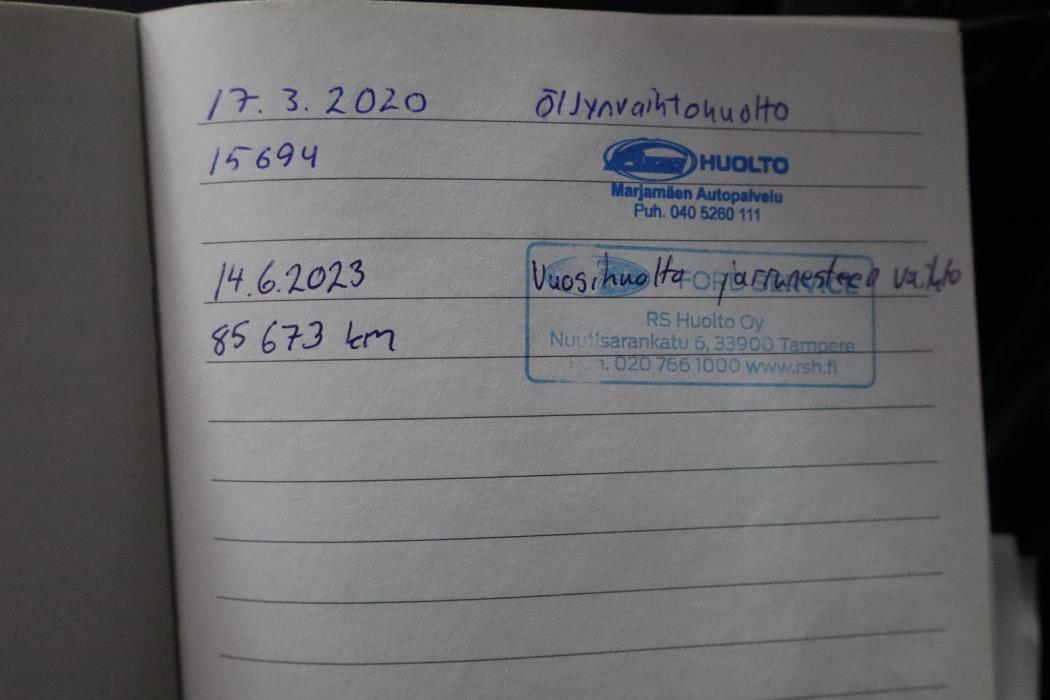 17.3.2020 Öljynvaihtohuolto
15694
HUOLTO
Marjamäen Autopalvelu
Puh. 040 5260 111
14.6.2023 Vuosihuolto jarrunesteen vaihto
FORD SERVICE
85 673 km
RS Huolto Oy
Nuutisarankatu 6, 33900 Tampere
020 766 1000 www.rsh.fi